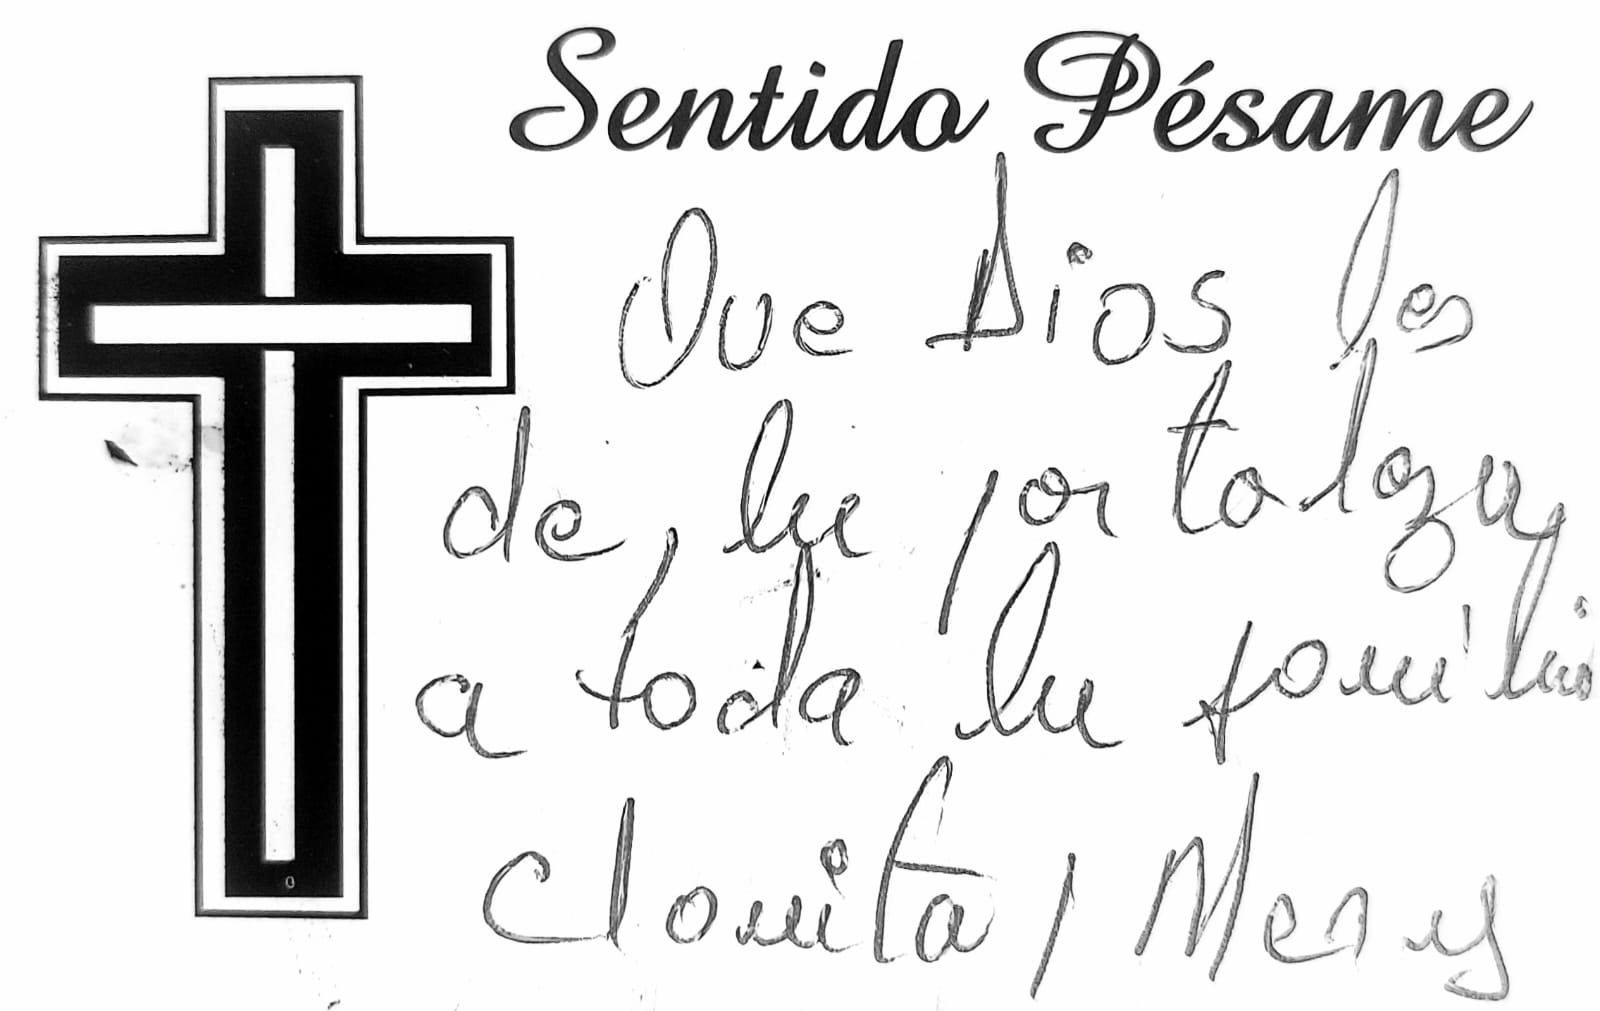 Sentido Pésame
Que Dios les
de la fortaleza
a toda la familia
Clarita, Mery